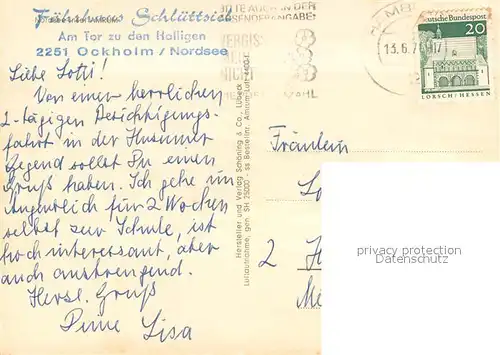 Fährhaus Schlüttsiel
Am Tor zu den Halligen
2251 Ockholm / Nordsee
BITTE AUCH IN DER
ABSENDERANGABE:
VERGISS
NICHT
13.6.7
Deutsche Bundespost
20
LORSCH/HESSEN
Liebe Lotti!
Von einer herrlichen
2-tägigen Besichtigungs-
fahrt in der Husumer
Gegend sollst Du einen
Gruß haben. Ich gehe im
Augenblick für 2 Wochen
selbst zur Schule, ist
hoch interessant, aber
auch anstrengend.
Herzl. Gruß
Deine Lisa
Hersteller und Verlag Schöning & Co., Lübeck
Luftaufnahme, gen SH 25200
Fräulein
Lo
2 H
Me
privacy protection
Datenschutz